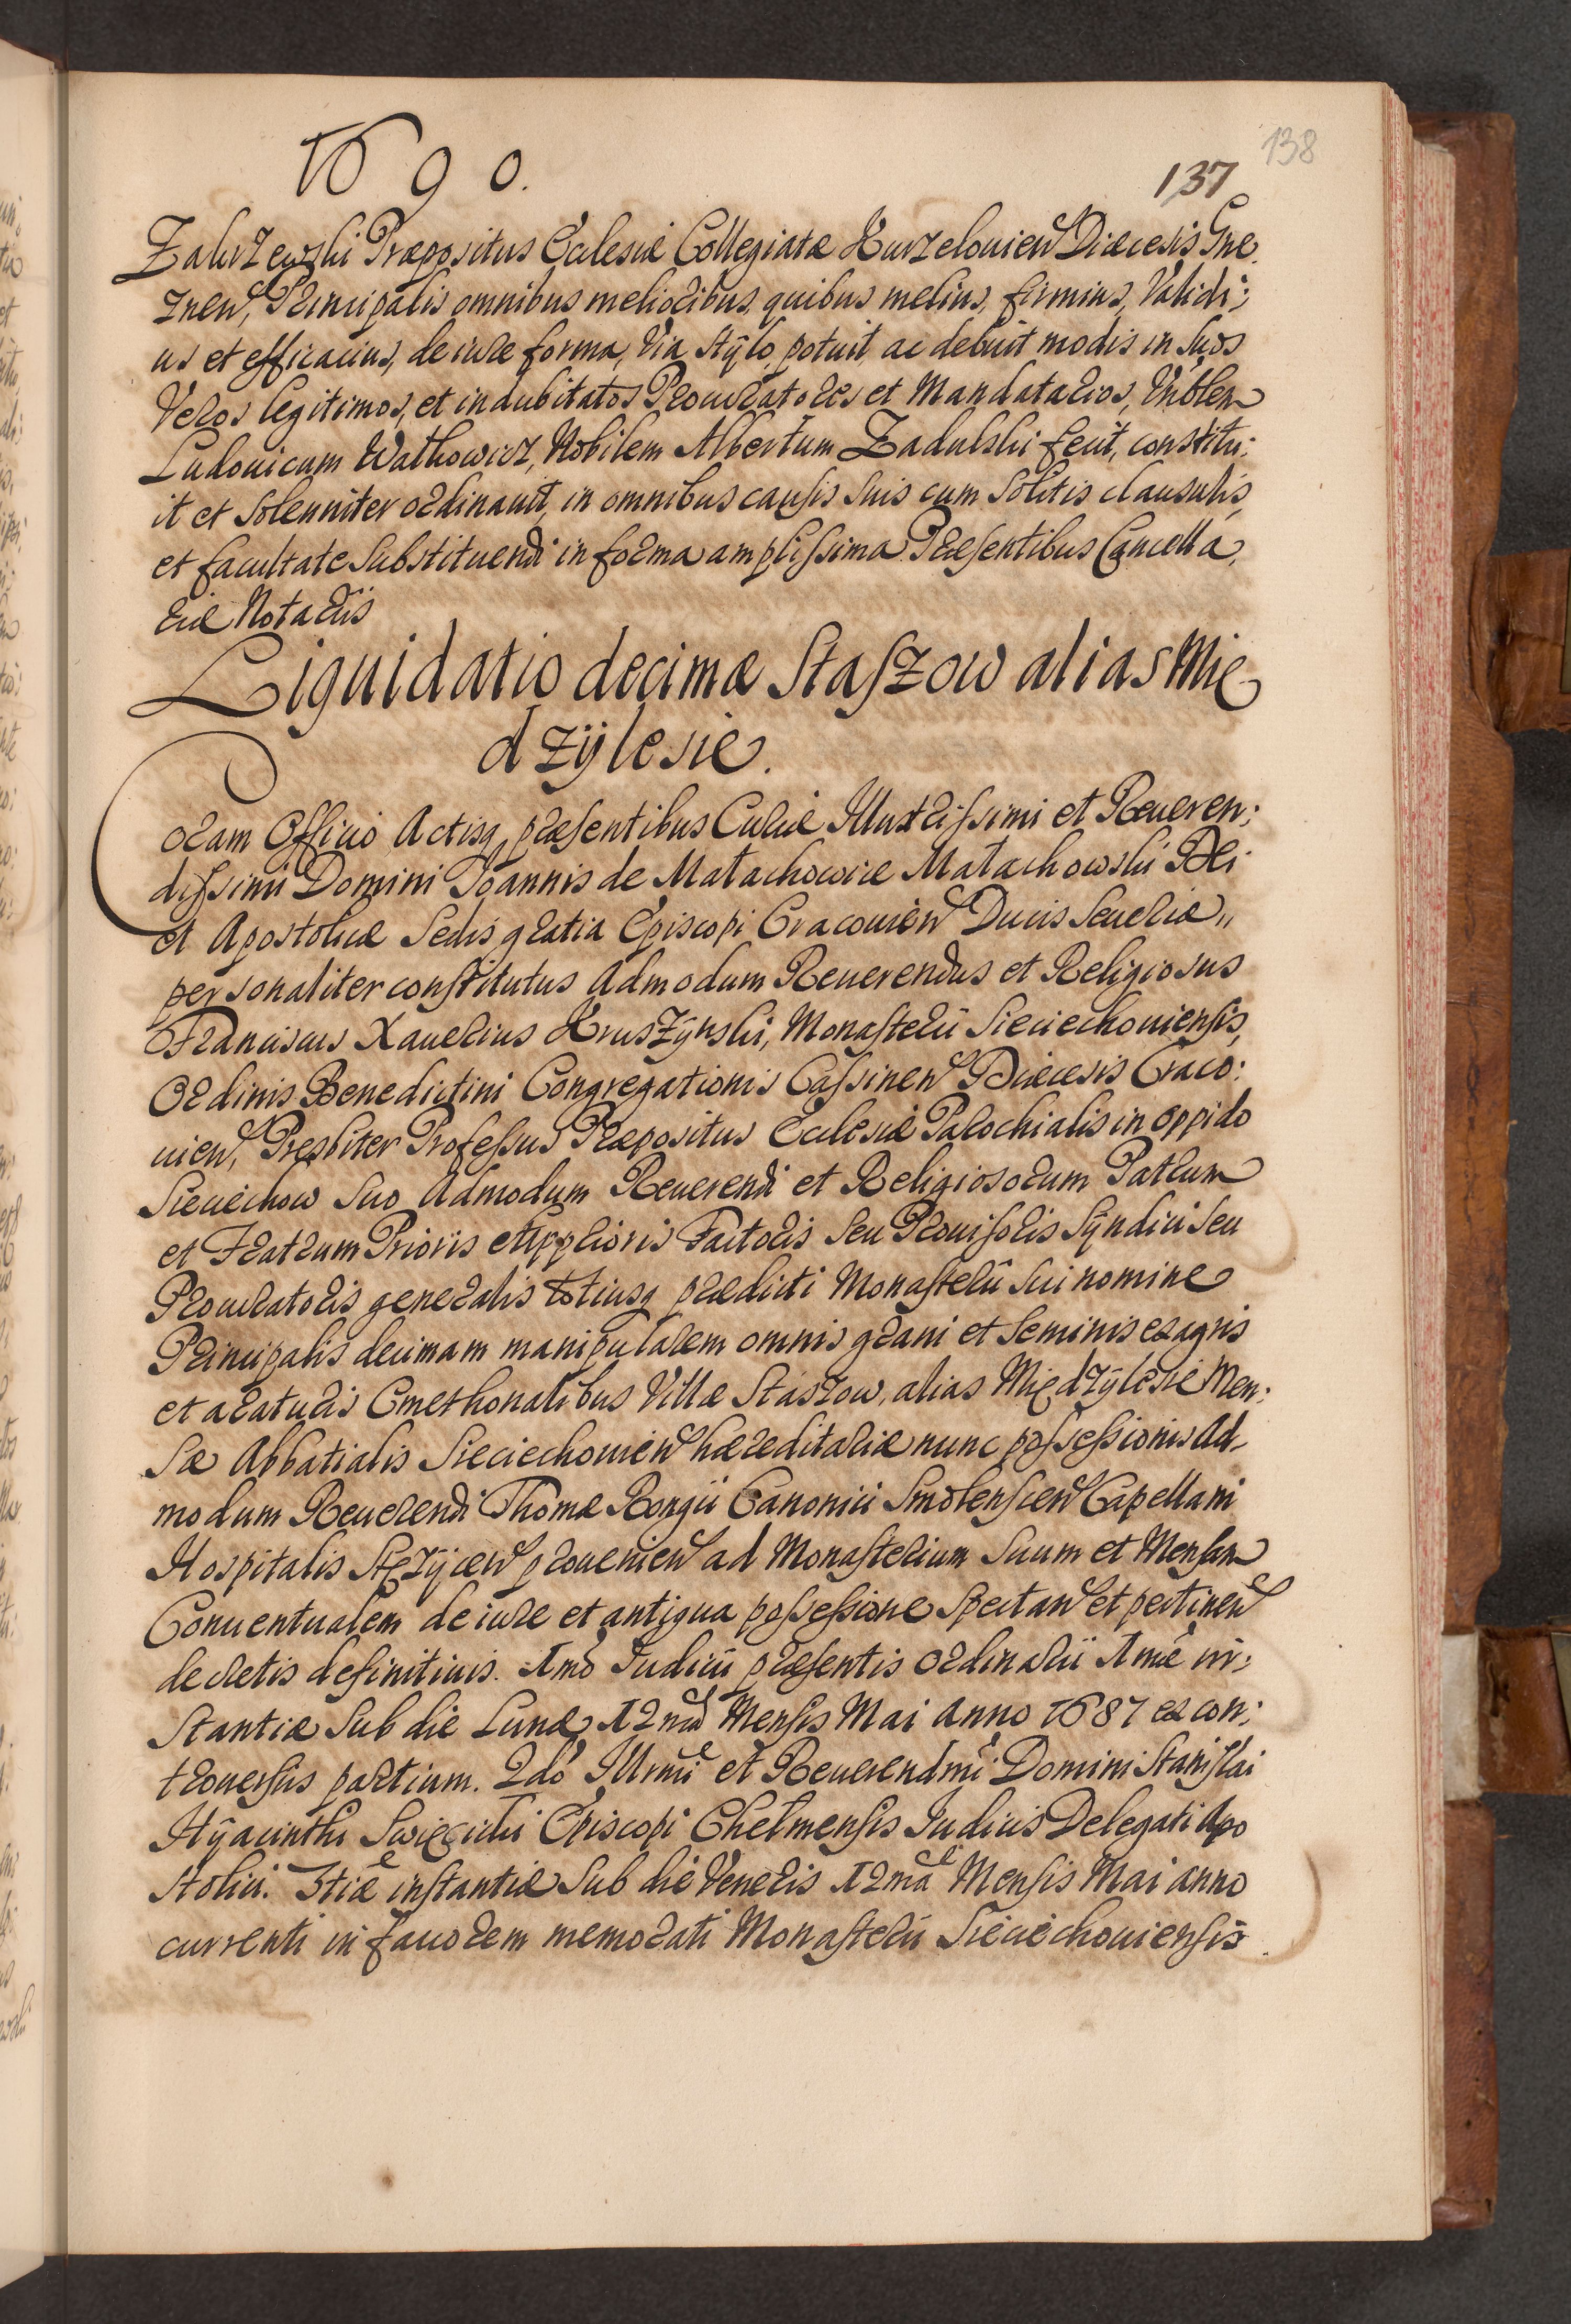 1690.
138
137
Zakrzewski Præpositus Ecclesiæ Collegiatæ Kurzelouien Diæcesis Gne
znen, Principalis omnibus melioribus, quibus melius, firmius, Validi:
us et efficacius, de iure forma, Via stÿlo, potuit ac debuit modis in Suos
Veros legitimos, et indubitatos Procuratores et Mandatarios,
Ludouicum Wathowicz, Nobilem Albertum Zadulski fecit, constitu:
it et Solenniter ordinauit, in omnibus causis Suis cum Solitis clausulis,
et facultate Substituendi in forma amplissima. Præsentibus Cancella,
riæ Notariis
Liquidatio decimæ Staszow alias Mię
dzÿlesie.
Coram Officio Actisq præsentibus Curiæ Illustrissimi et Reueren:
dissimi Domini Joannis de Małachowice Małachowski Dei
et Apostolicæ Sedis gratia Episcopi Cracouien Ducis Seueriæ,,
personaliter constitutus Admodum Reuerendus et Religiosus
Franciscus Xauerius Kruszÿnski, Monasterii Sieciechouiensis,
Ordinis Benedictini Congregationis Cassinen Diæcesis Craco:
uien, Presbiter Professus Præpositus Ecclesiæ Parochialis in oppido
Sieciechow Suo Admodum Reuerendi et Religiosorum Patrum
et Fratrum Prioris Suppprioris Factoris Seu Prouisoris Sÿndici Seu
Procuratoris generalis totiusq prædicti Monasterii Sui nomine
Principalis decimam manipularem omnis grani et Seminis ex agris
et araturis Cmethonalibus Villæ Staszow, alias Międzÿlesie Men:
Sæ Abbatialis Sieciechouien hæreditariæ nunc possessionis Ad,
modum Reuerendi Thomæ Rongii Canonici Smolenscen Capellani
Hospitalis Stęzÿcen prouenien ad Monasterium Suum et Mensam
Conuentualem de iure et antiqua possessione Spectan et pertinen
decretis definitiuis. Imo Iudicii præsentis Ordinarii Imæ in:
Stantiæ Sub die Lunæ 12ma Mensis Mai Anno 1687 ex con:
trouersiis partium. 2do Illrmi et Reuerendmi Domini Stanislai
Hÿacinthi Swięcicki Episcopi Chełmensis Iudicis Delegati Apo
Stolici. 3tiæ instantiæ Sub die Veneris 12ma Mensis Mai anno
currenti in fauorem memorati Monasterii Sieciechouiensis